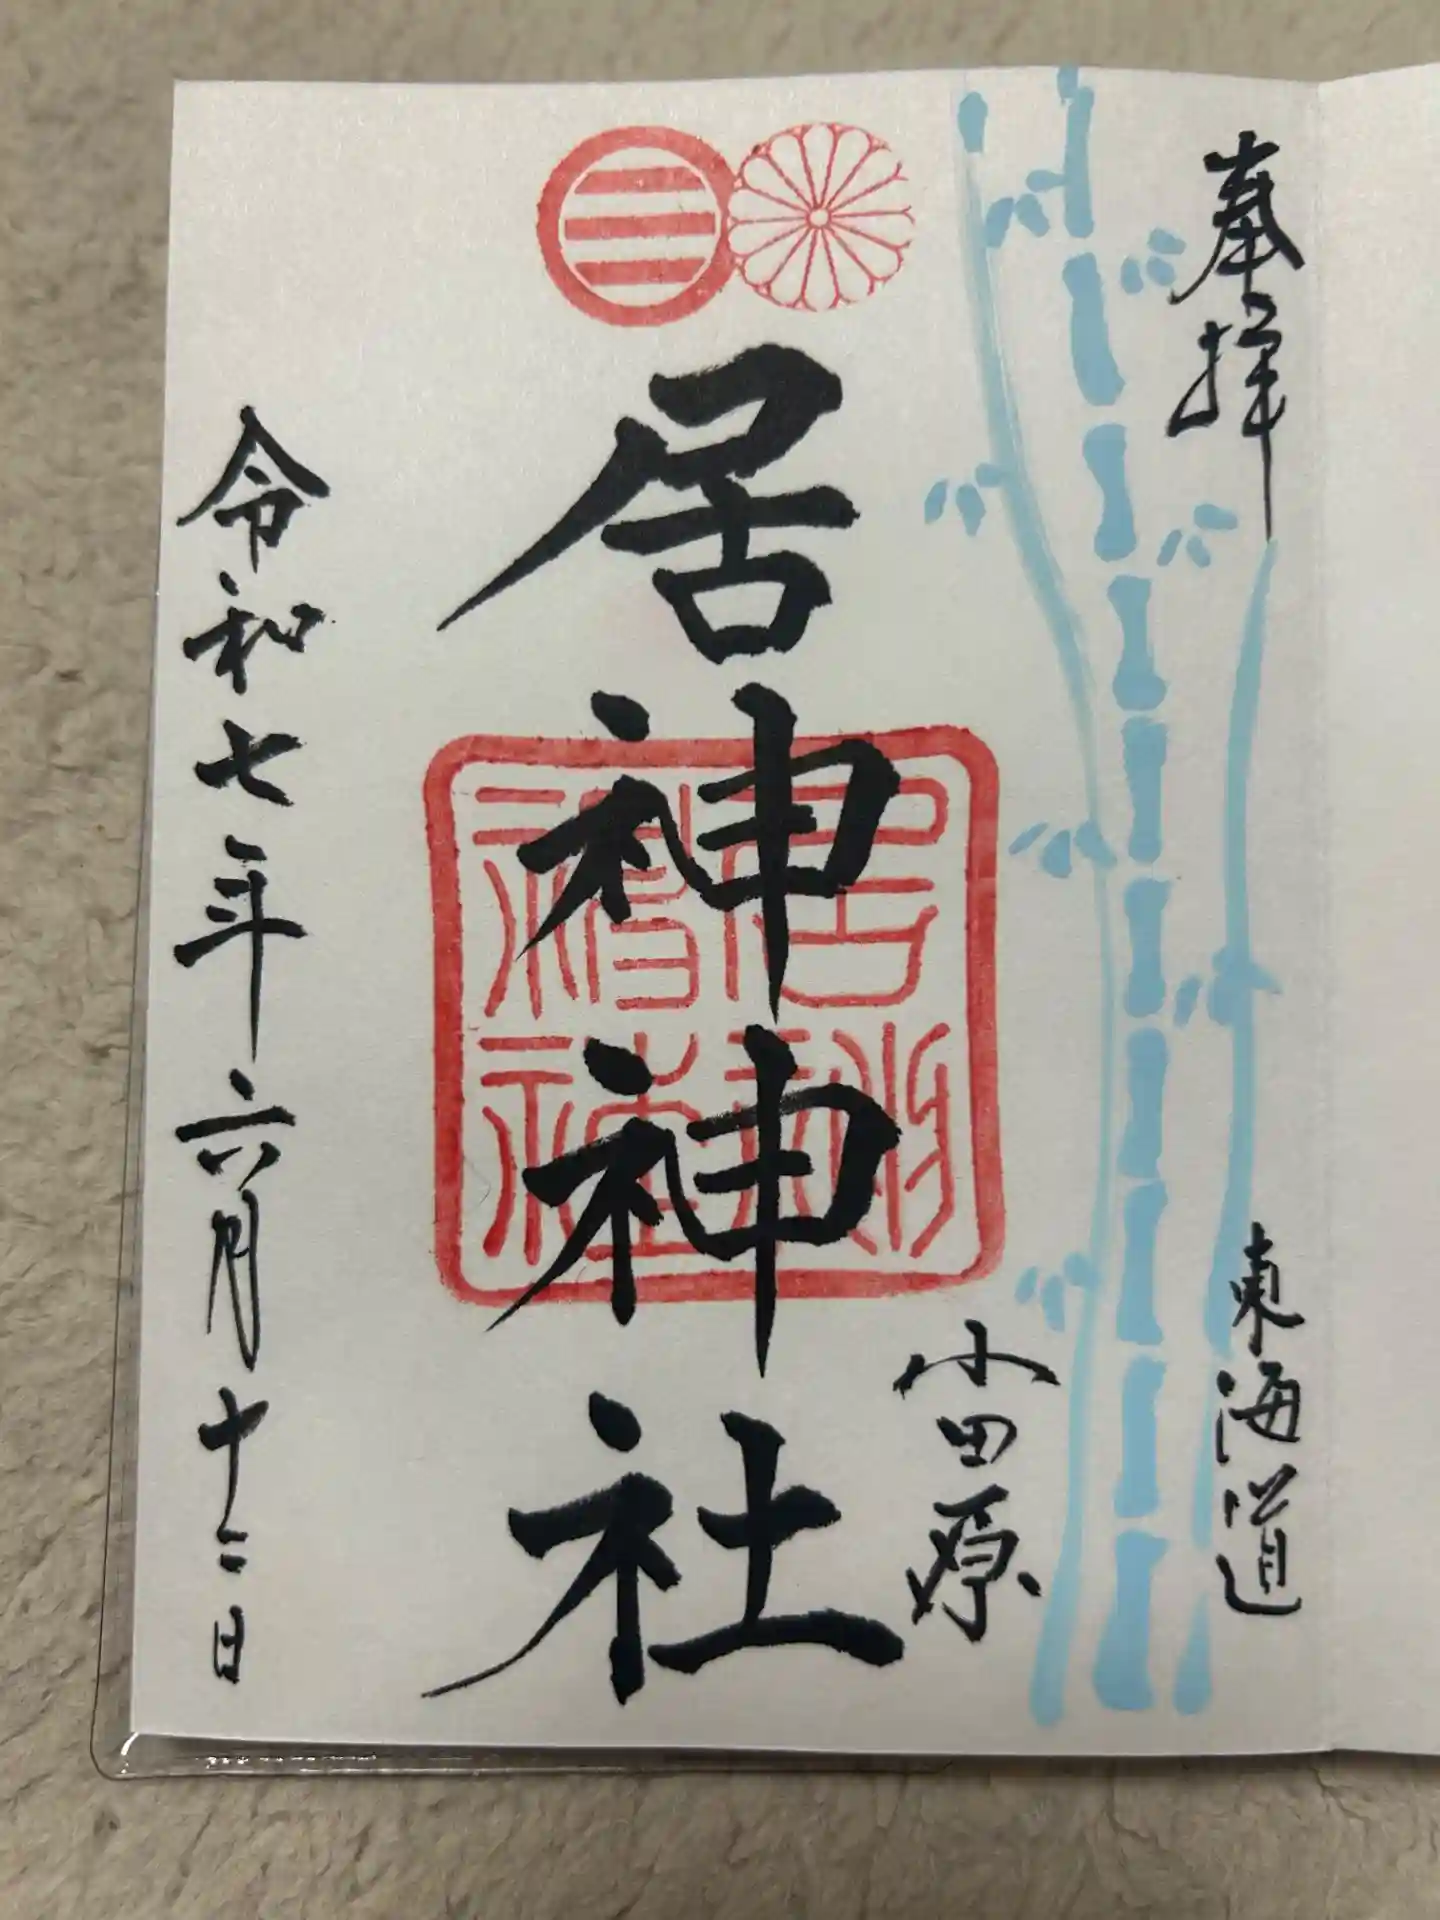 奉拝
東海道
小田原
居神神社
居神神社
令和七年六月十二日